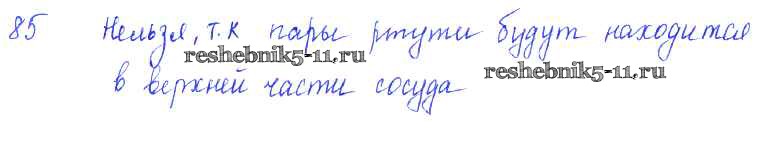 85 Нельзя, т.к пары ртути будут находится
reshebnik5-11.ru
reshebnik5-11.ru
в верхней части сосуда